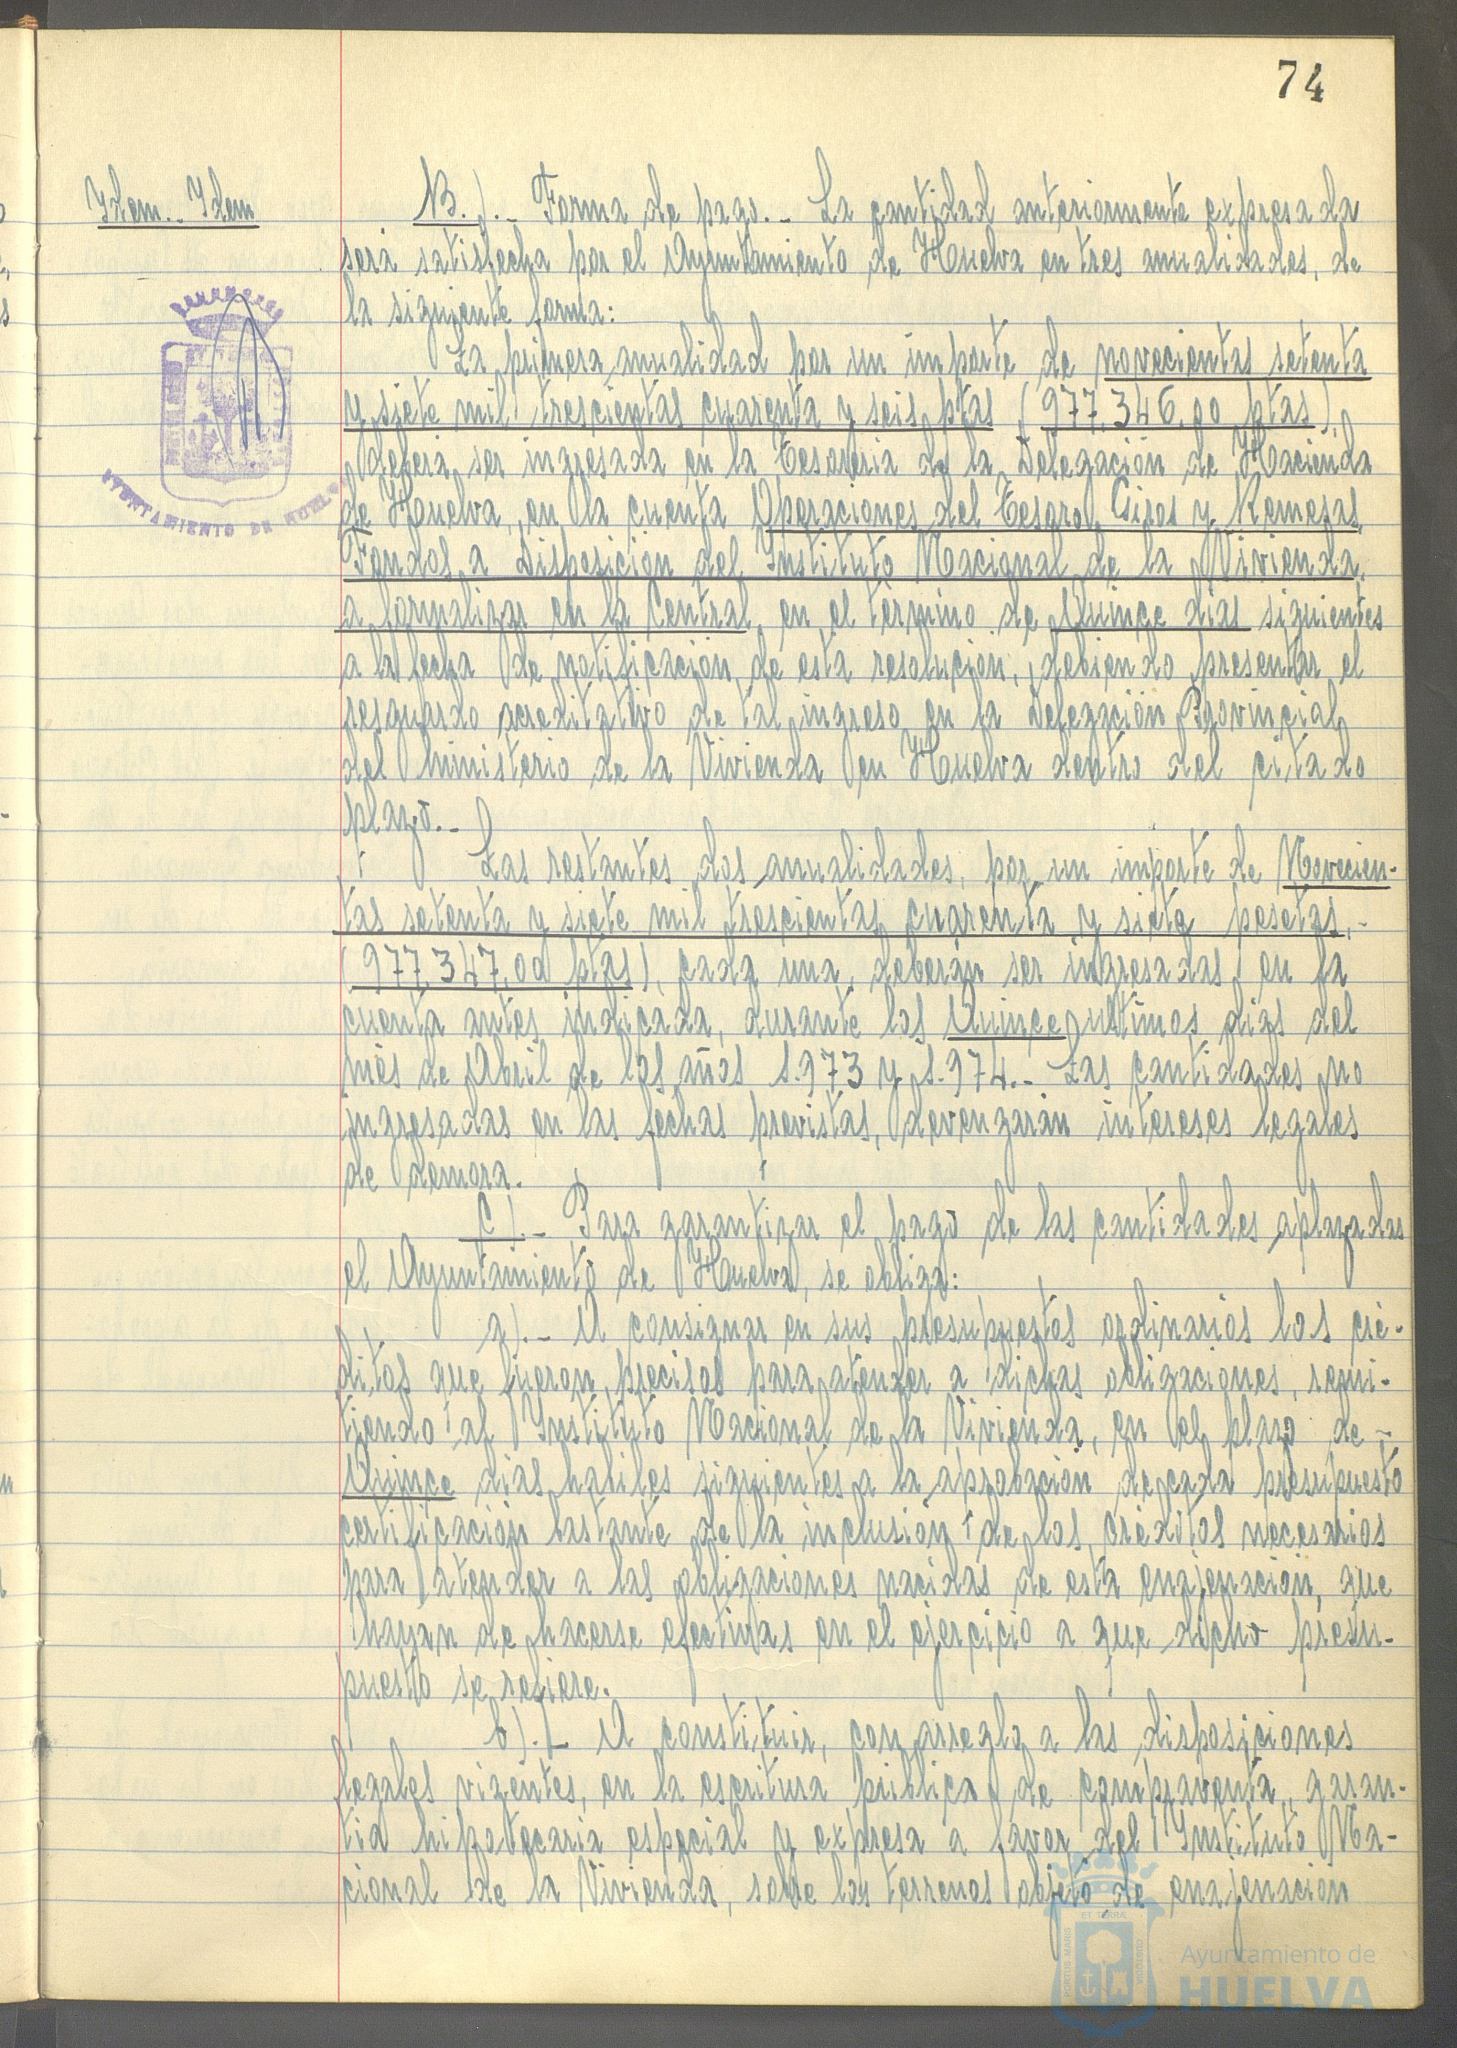 74
Idem.- Idem
B.).- Forma de pago.- La cantidad anteriormente expresada
será satisfecha por el Ayuntamiento de Huelva en tres anualidades, de
la siguiente forma:
La primera anualidad por un importe de novecientas setenta
y siete mil trescientas cuarenta y seis ptas (977.346,00 ptas),
deberá ser ingresada en la Tesorería de la Delegación de Hacienda
de Huelva, en la cuenta Operaciones del Tesoro, Giros y Remesas,
Fondos a Disposición del Instituto Nacional de la Vivienda,
a formalizar en la Central, en el término de Quince dias siguientes
a la fecha de notificación de esta resolución, debiendo presentar el
resguardo acreditativo de tal ingreso en la Delegación Provincial
del Ministerio de la Vivienda en Huelva dentro del citado
plazo.-
Las restantes dos anualidades, por un importe de Novecien-
tas setenta y siete mil trescientas cuarenta y siete pesetas,-
(977.347,00 ptas), cada una, deberán ser ingresadas en la
cuenta antes indicada, durante los Quince ultimos dias del
mes de Abril de los años 1.973 y 1.974.- Las cantidades no
ingresadas en las fechas previstas, devengarán intereses legales
de demora.
C).- Para garantizar el pago de las cantidades aplazadas
el Ayuntamiento de Huelva, se obliga:
a).- A consignar en sus presupuestos ordinarios los cré-
ditos que fueron precisos para atender a dichas obligaciones, remi-
tiendo al Instituto Nacional de la Vivienda, en el plazo de -
Quince dias habiles siguientes a la aprobación de cada presupuesto
certificación bastante de la inclusión de los créditos necesarios
para atender a las obligaciones nacidas de esta enajenación, que
hayan de hacerse efectivas en el ejercicio a que dicho presu-
puesto se refiere.
b).- A constituir, con arreglo a las disposiciones
legales vigentes, en la escritura pública de compraventa, garan-
tia hipotecaria especial y expresa a favor del Instituto Na-
cional de la Vivienda, sobre los terrenos objeto de enajenación
AYUNTAMIENTO DE HUELVA
PORTUS MARIS
ET TERRAE
CUSTODIA
Ayuntamiento de
HUELVA